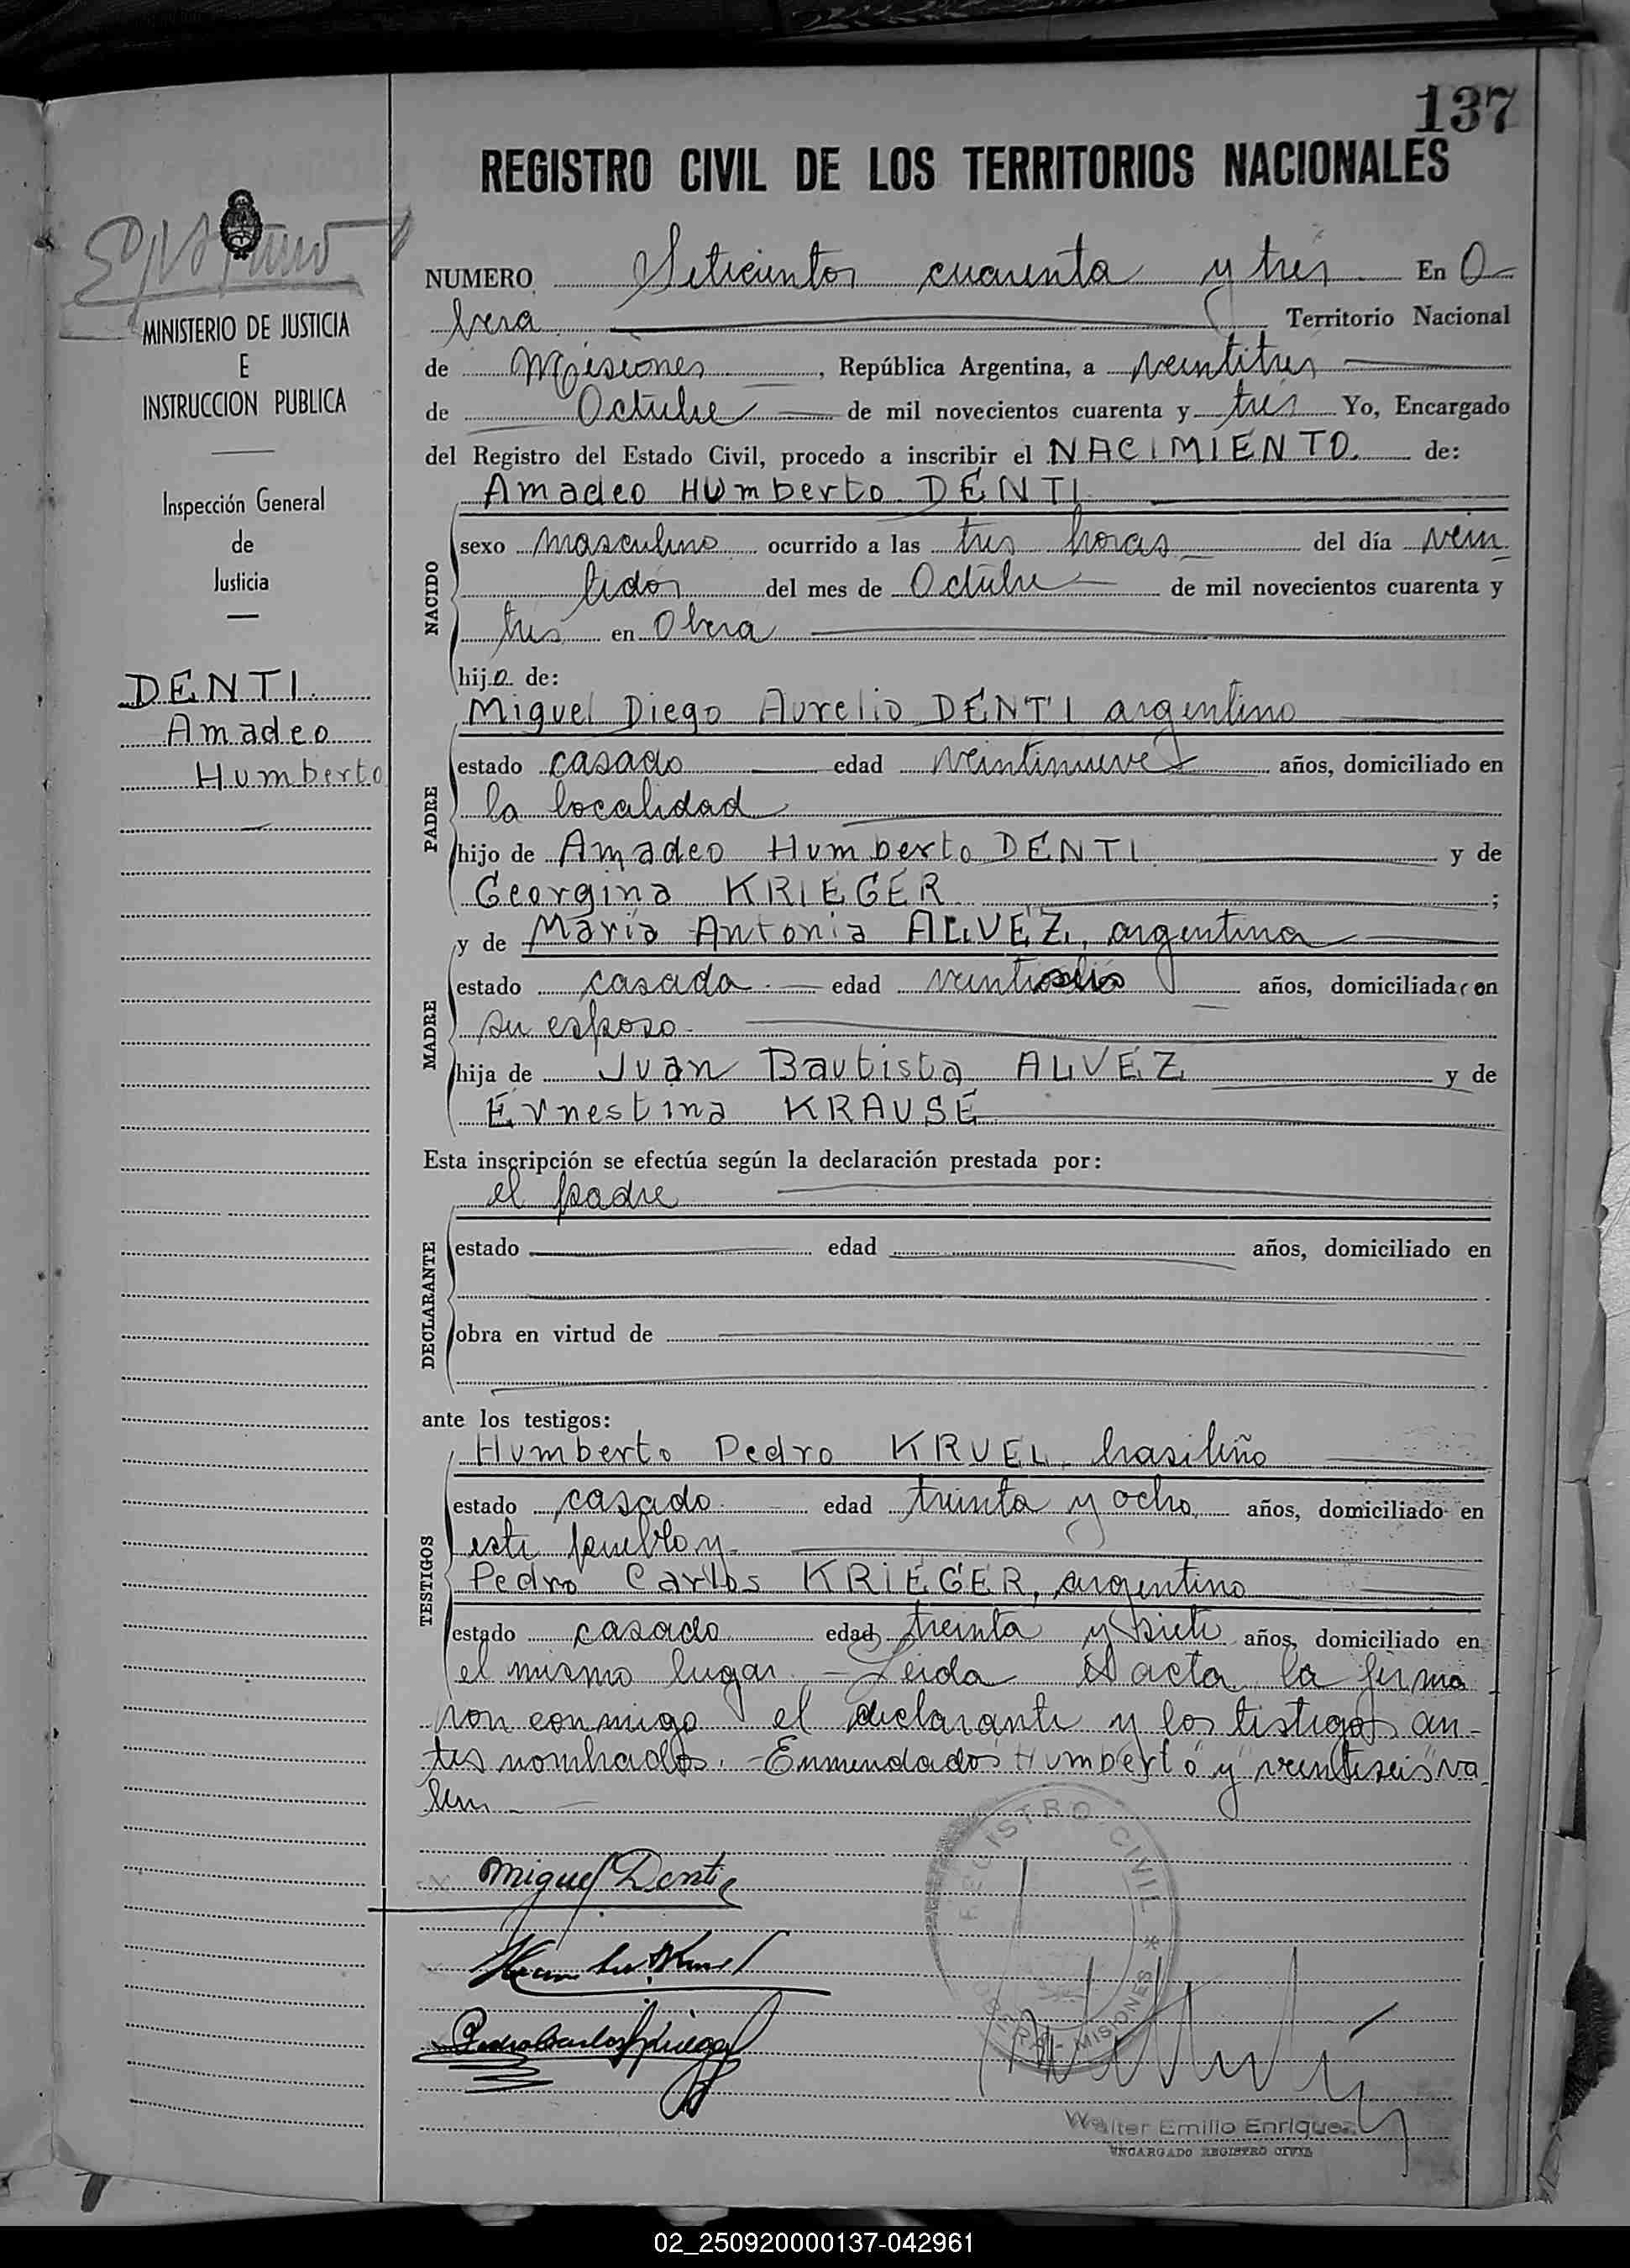 137
REGISTRO CIVIL DE LOS TERRITORIOS NACIONALES
MINISTERIO DE JUSTICIA
E
INSTRUCCION PUBLICA
Inspección General
de
Justicia
DENTI
Amadeo
Humberto
NUMERO Seticientos cuarenta y tres En O-
bera Territorio Nacional
de Misiones, República Argentina, a veintitres
de Octubre de mil novecientos cuarenta y tres Yo, Encargado
del Registro del Estado Civil, procedo a inscribir el NACIMIENTO. de:
Amadeo Humberto DENTI
NACIDO
sexo masculino ocurrido a las tres horas del día vein
tidos del mes de Octubre de mil novecientos cuarenta y
tres en Obera
hijo de:
Miguel Diego Aurelio DENTI argentino
PADRE
estado casado edad veintinueve años, domiciliado en
la localidad
hijo de Amadeo Humberto DENTI y de
Georgina KRIEGER ;
y de Maria Antonia ALVEZ, argentina
MADRE
estado casada edad veintiseis años, domiciliada con
su esposo.
hija de Juan Bautista ALVEZ y de
Ernestina KRAUSE
Esta inscripción se efectúa según la declaración prestada por:
el padre
DECLARANTE
estado edad años, domiciliado en
obra en virtud de
ante los testigos:
Humberto Pedro KRUEL, brasileño
TESTIGOS
estado casado edad treinta y ocho, años, domiciliado en
este pueblo y
Pedro Carlos KRIEGER, argentino
estado casado edad treinta y siete años, domiciliado en
el mismo lugar.- Leida el acta la firma
ron conmigo el declarante y los testigos an-
tes nombrados.-Enmendados "Humberto" y "veintiseis" va
len.-
Miguel Denti
Pedro Carlos Krieger
REGISTRO CIVIL * OBERA - MISIONES
Walter Emilio Enriquez
ENCARGADO REGISTRO CIVIL
02_250920000137-042961